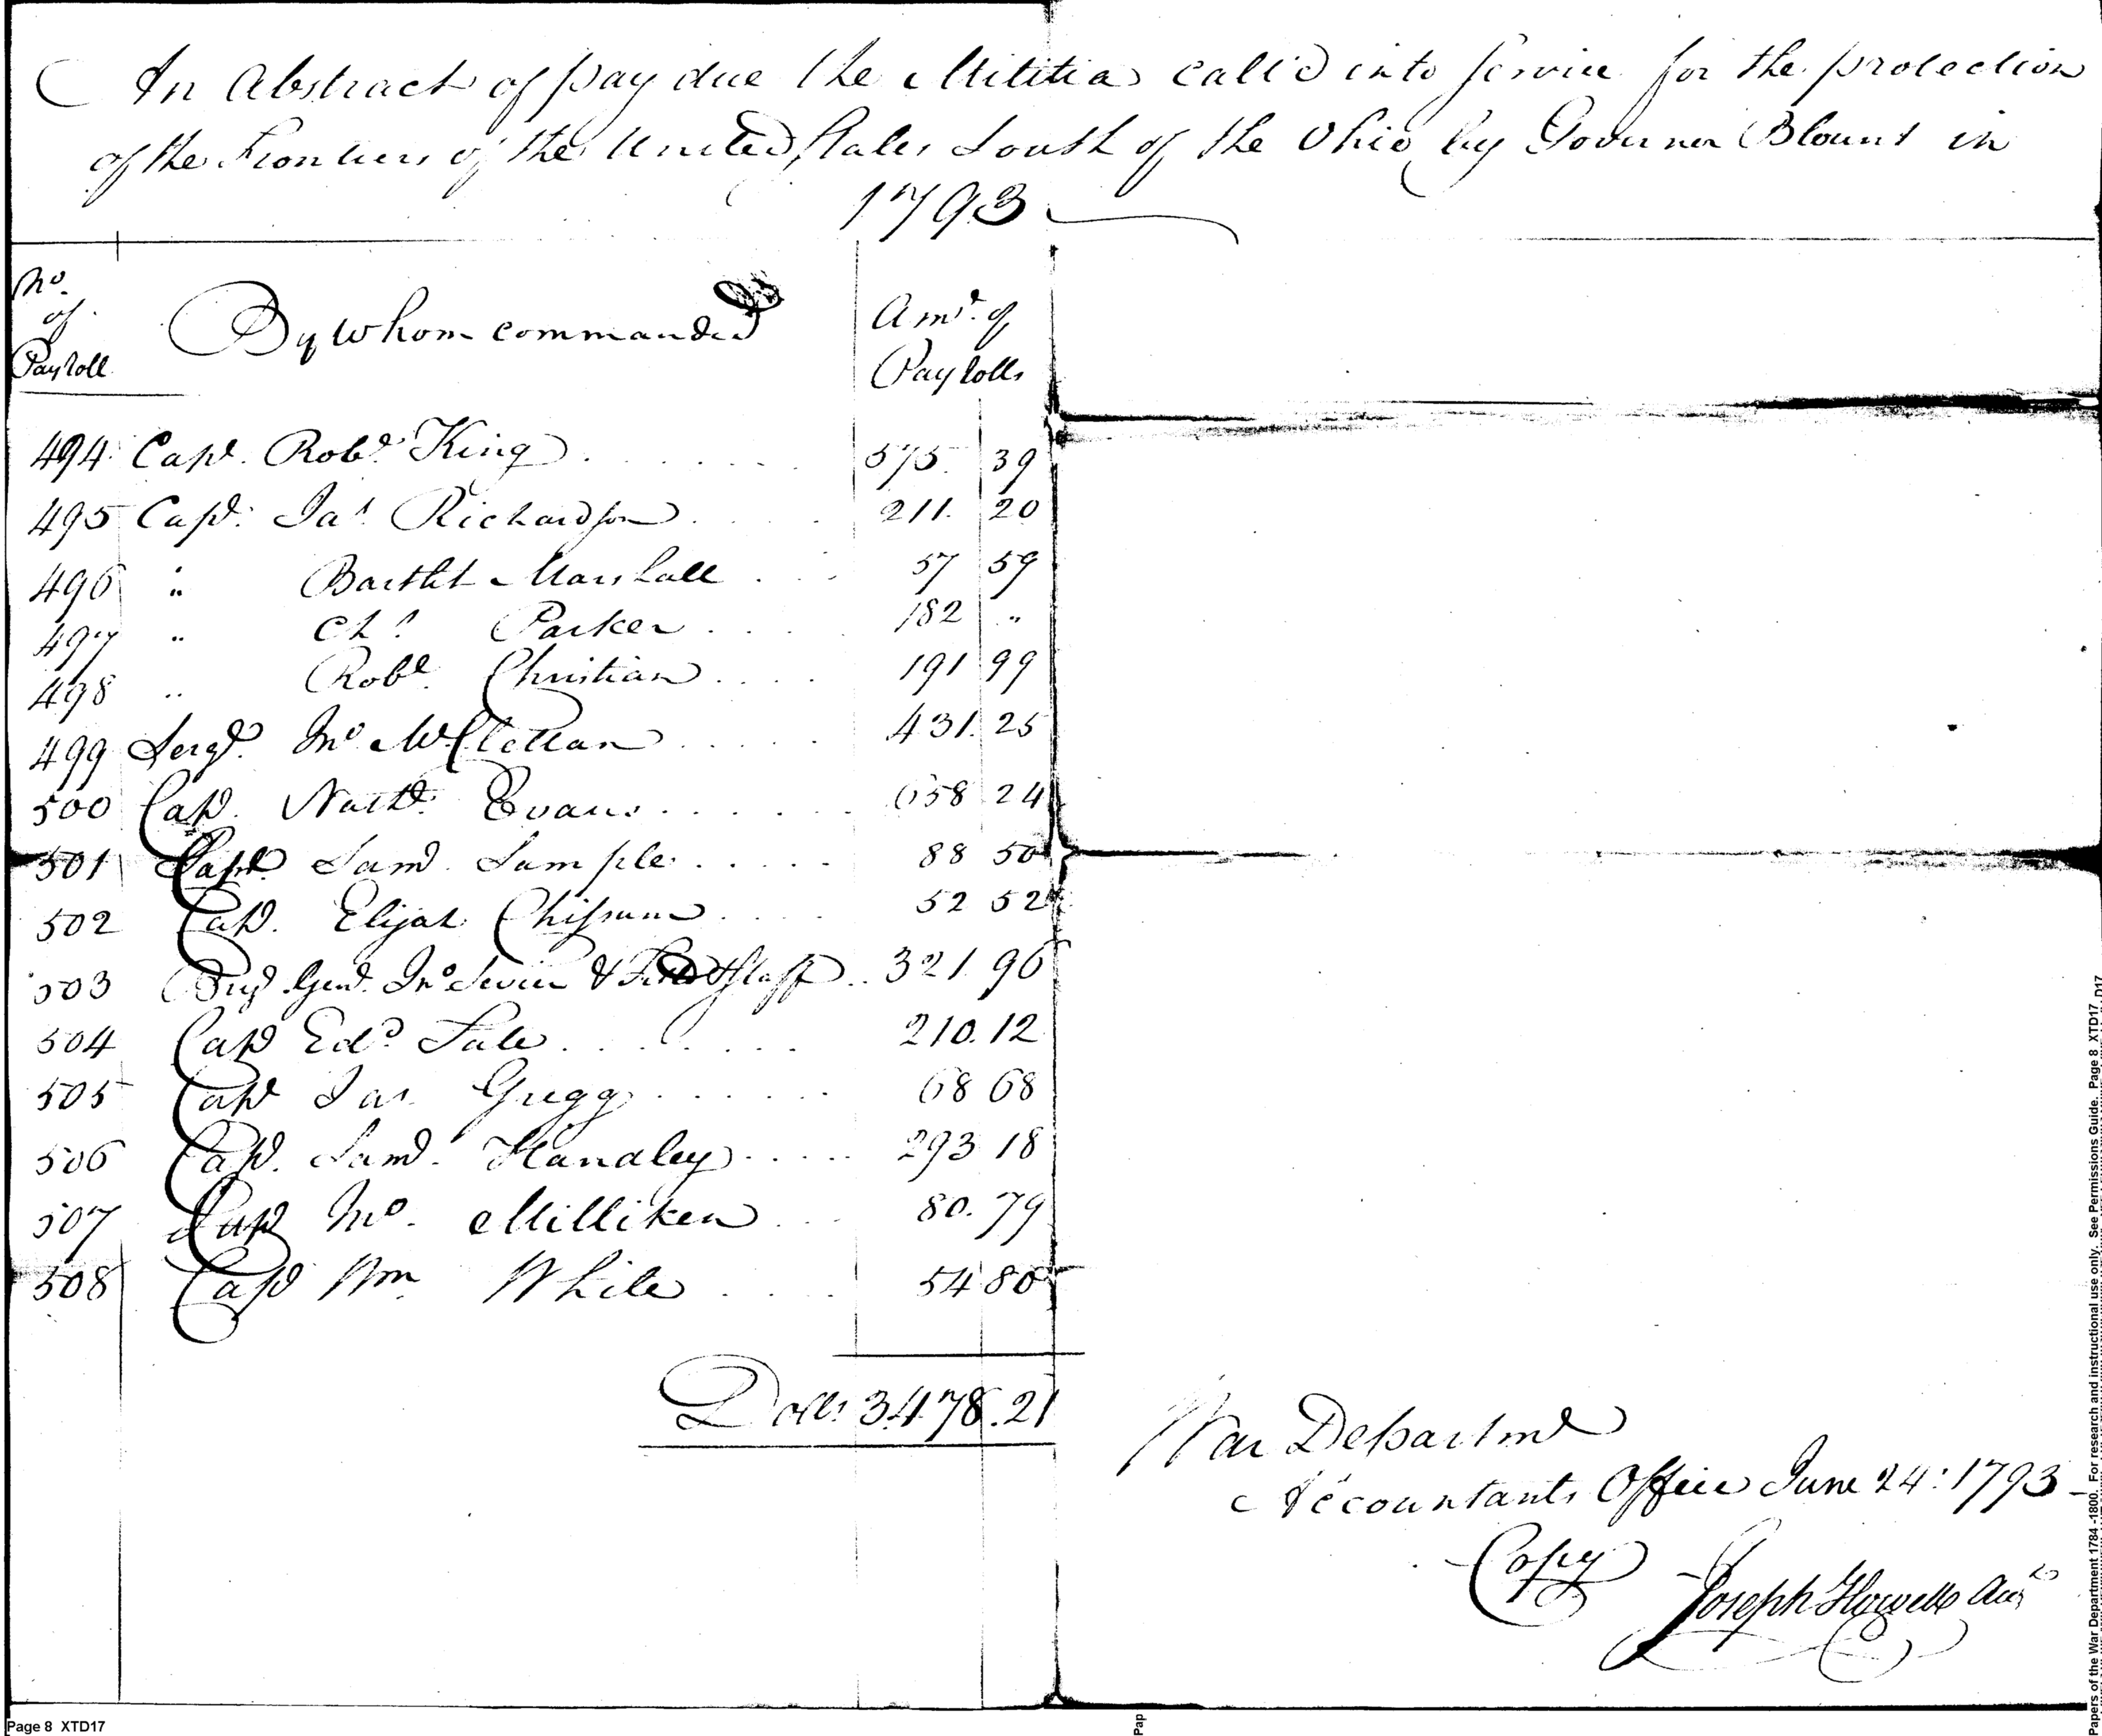 An Abstract of pay due the Militia call'd into Service for the protection
of the Frontiers of the United States South of the Ohio by Governor Blount in
1793
No. of Payroll
By whom commanded
Amt. of Payrolls
494 Capt. Robt. King . . . . . . 575. 39
495 Capt. Jas Richardson . . . . 211. 20
496 " Bartlet Marshall . . . 57 59
497 " Chs Parker . . . . 182 "
498 " Robt. Christian . . . . 191 99
499 Sergt. Jno McClellan . . . . . 431. 25
500 Capt. Nathl. Evans . . . . . . 658 24
501 Capt Saml. Sample . . . . . 88 50
502 Capt. Elijah Chissum . . . . 52 52
503 Brig. Genl. Jno Sevier & Field & Staff . . 321. 96
504 Capt Edd Sale . . . . . . 210. 12
505 Capt Jas Gregg . . . . . . 68 68
506 Capt. Saml. Handley . . . . . 293 18
507 Capt Jno. Milliken . . . 80. 79
508 Capt Wm White . . . . 54 80
Dolls 3478.21
War Departmt
Accountants Office June 24: 1793
Copy
Joseph Howell
Page 8 XTD17
Pap
Papers of the War Department 1784 -1800. For research and instructional use only. See Permissions Guide. Page 8 XTD17